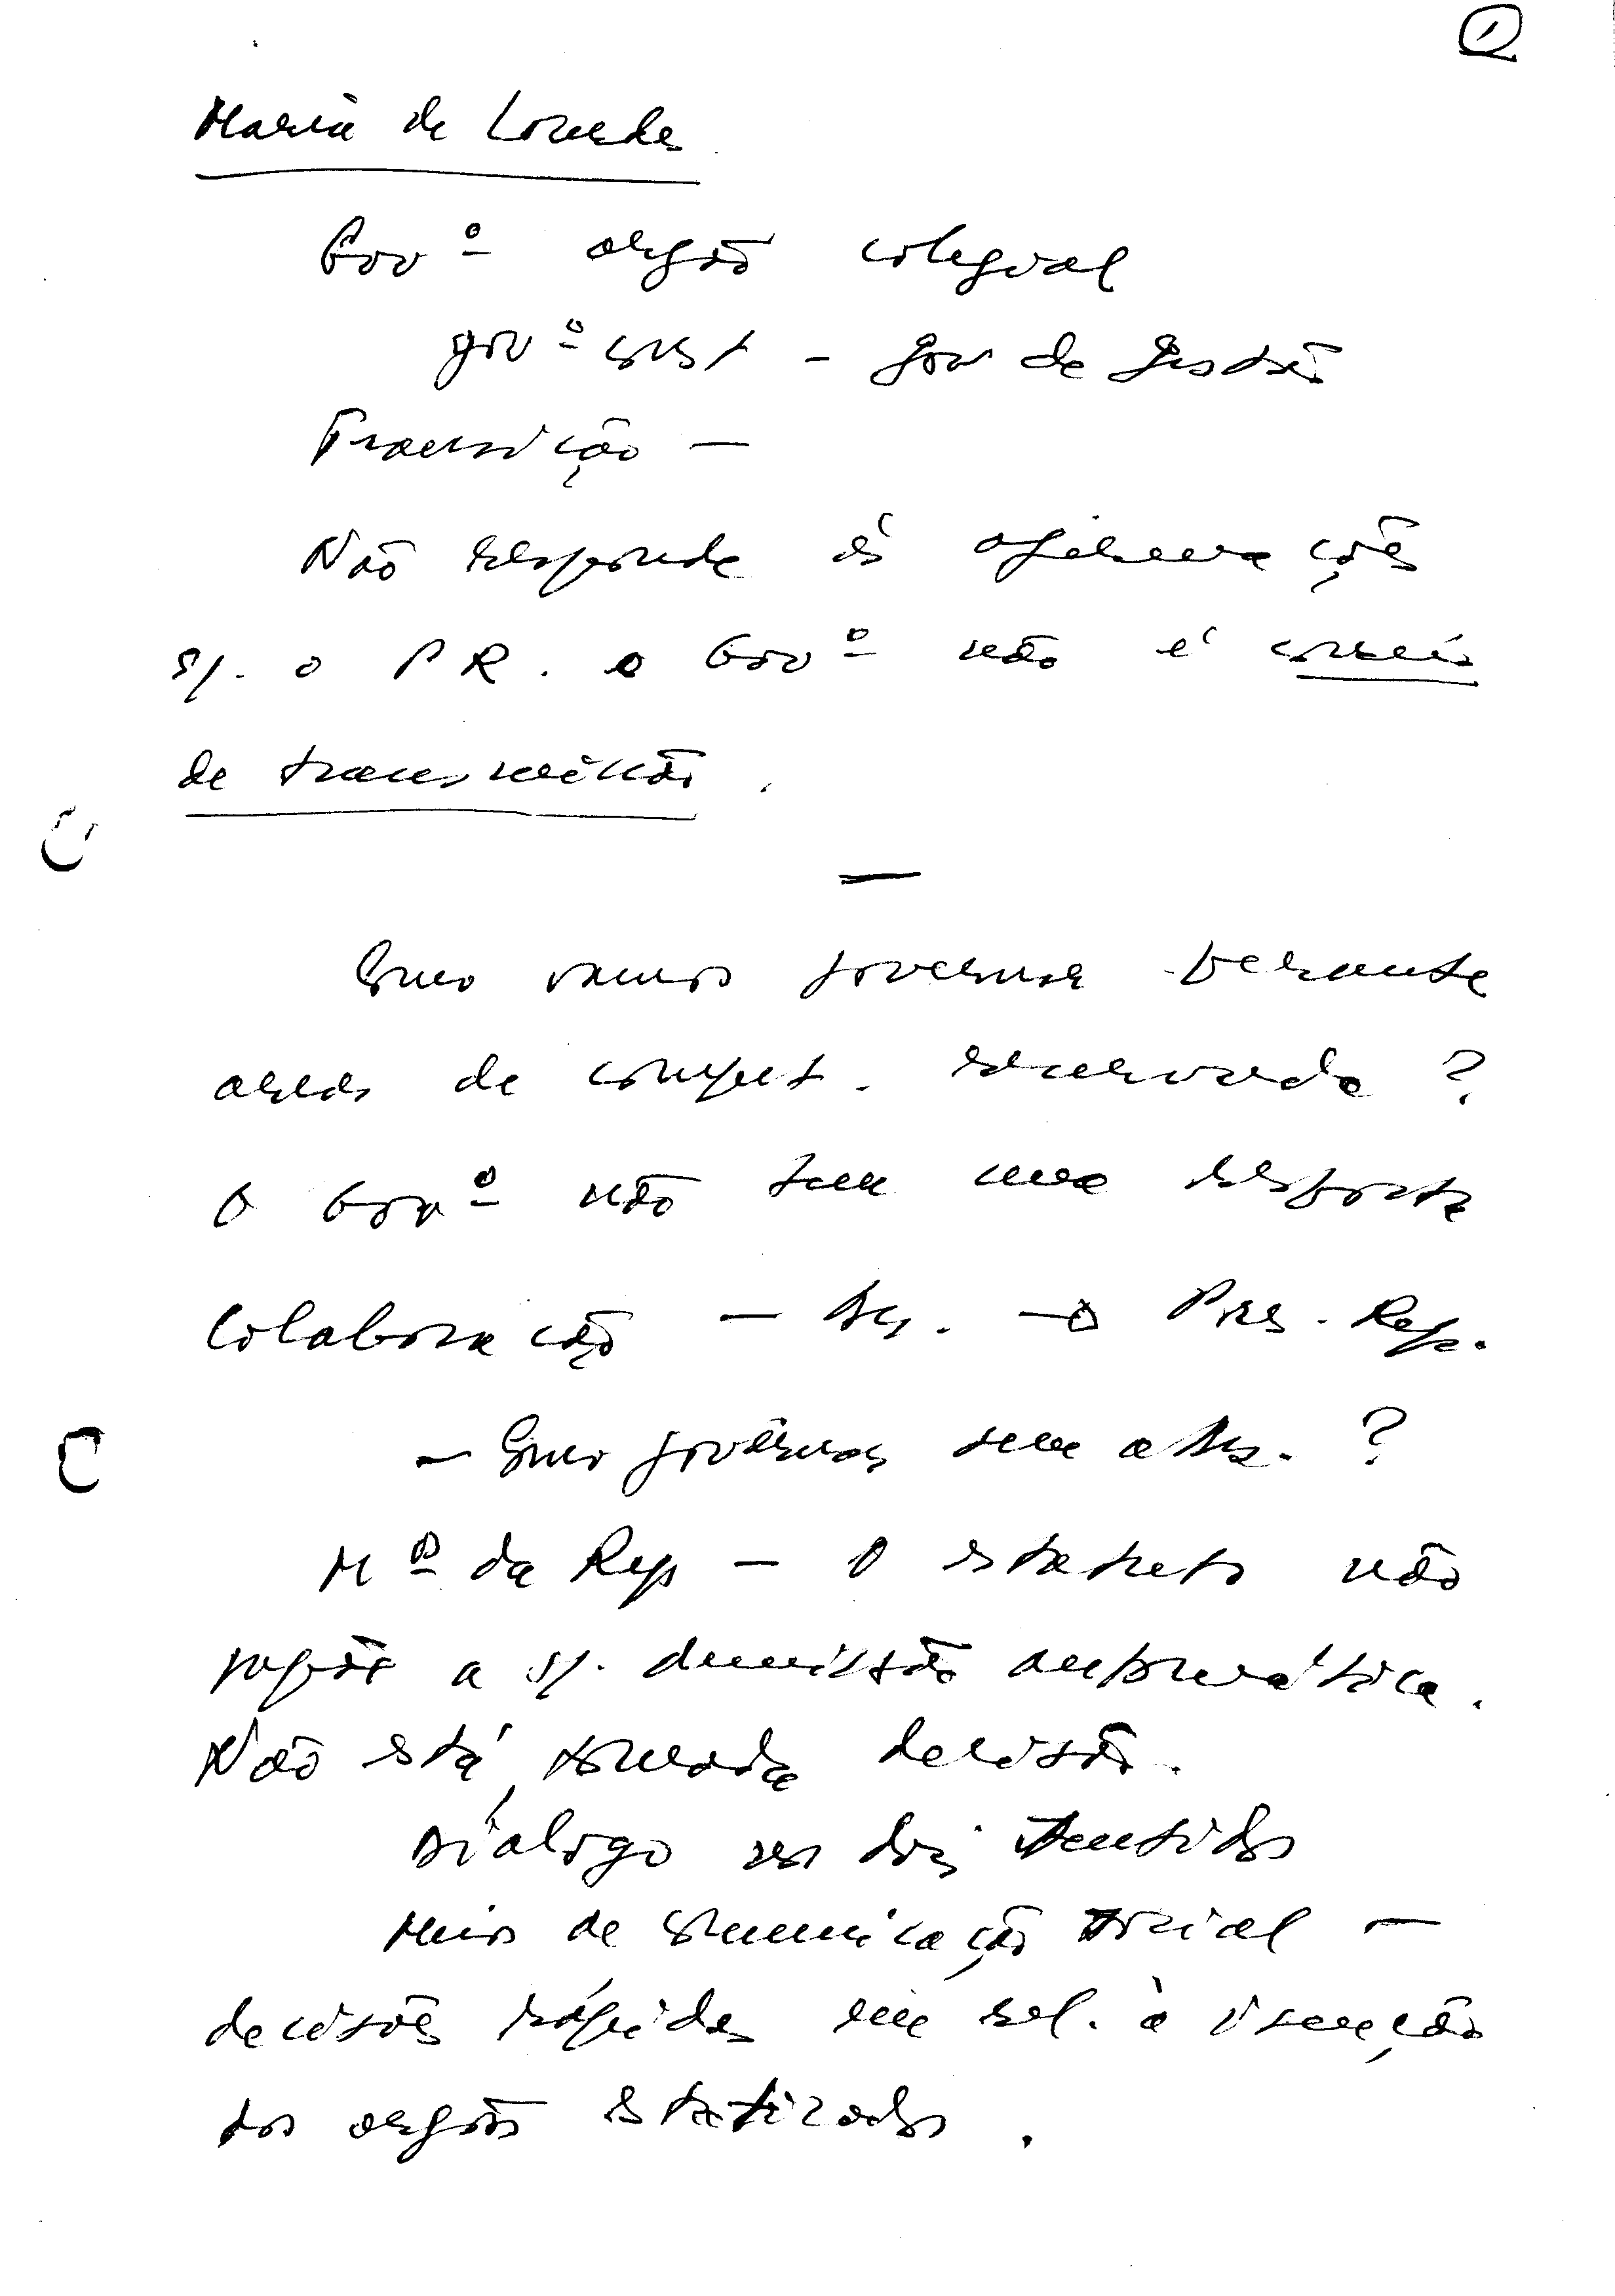 1
Maria de Lourdes
Govº orgão colegial
govº const - gov de gestão
Transição -
Não responde às afirmações
s/. o PR. o Govº não é correia
de transmissão.
Como vamos governar perante
areas de compet. reservada ?
O Govº não tem uma resposta
Colaboração - Ass. → Pres. Rep.
- Como governar sem a Ass. ?
Mº da Rep - O estatuto não
supõe a s/. demissão automática.
Não está tomada decisão.
Diálogo nos dois sentidos
Meios de comunicação social -
decisões rápidas em rel. à isenção
dos orgãos estatizados.